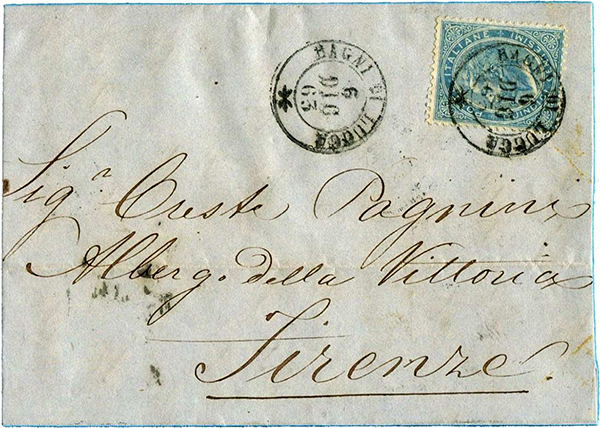 BAGNI DI LUCCA
6
DIC
63
ITALIANE
BAGNI DI LUCCA
6
DIC
Sig.r Oreste Pagnini
Albergo della Vittoria
Firenze